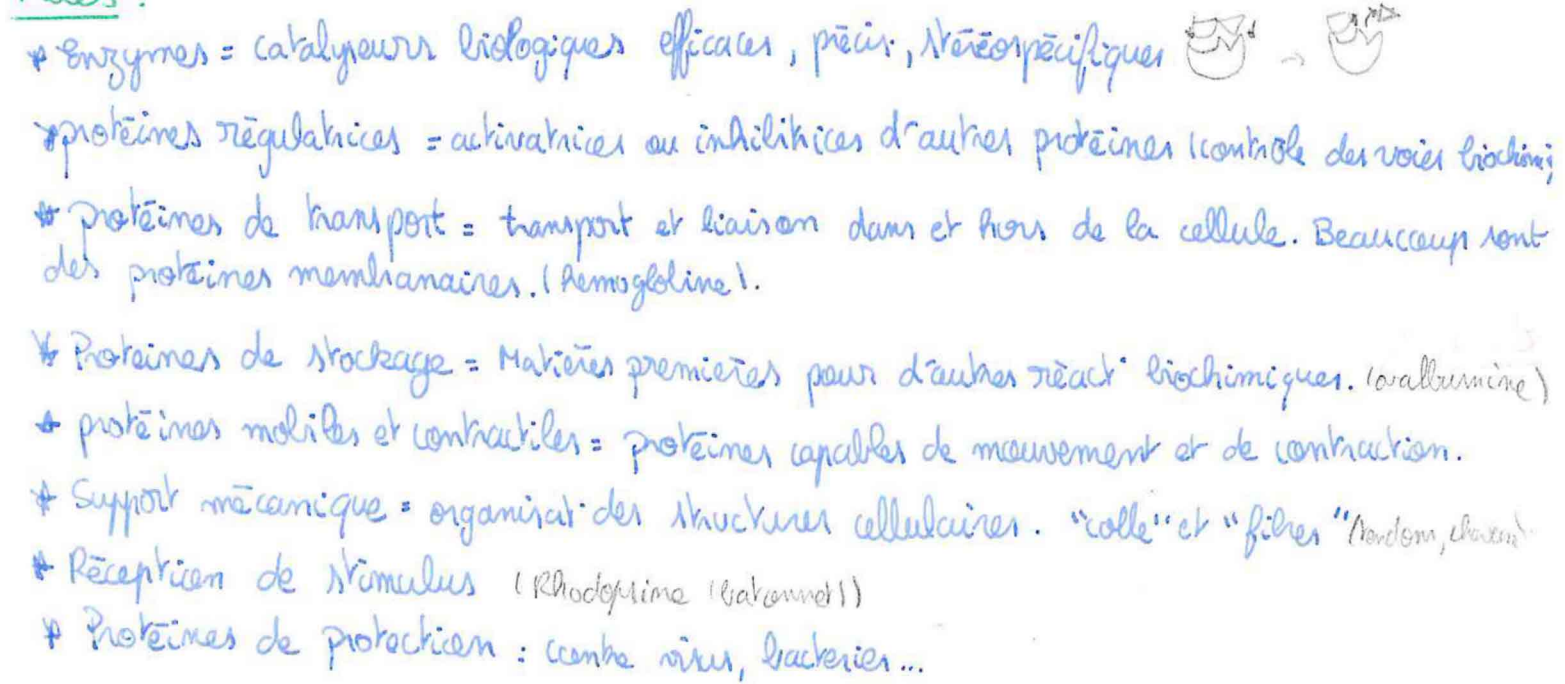 * Enzymes = catalyseurs biologiques efficaces, précis, stéréospécifiques
* protéines régulatrices = activatrices ou inhibitrices d'autres protéines (contrôle des voies biochim;
* Protéines de transport = transport et liaison dans et hors de la cellule. Beaucoup sont
des protéines membranaires. (hemoglobine).
* Proteines de stockage = Matières premières pour d'autres réact° biochimiques. (ovalbumine)
* protéines mobiles et contractiles = protéines capables de mouvement et de contraction.
* Support mécanique = organisat° des structures cellulaires. "colle" et "fibres"
* Réception de stimulus (Rhodopsine (batonnets))
* Protéines de protection : contre virus, bacteries...